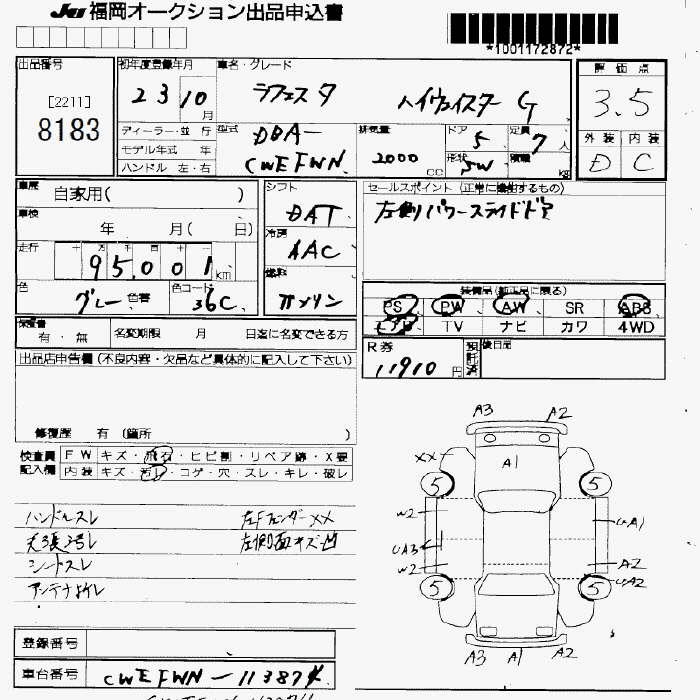 JU 福岡オークション出品申込書
*1001172872*
出品番号
[2211]
8183
初年度登録年月
23 10 月
車名・グレード
ラフェスタ ハイウェイスター G
評価点
3.5
外装 内装
D C
ディーラー・並行
モデル年式 年
ハンドル 左・右
型式
DBA-
CWEFWN
排気量
2000 CC
ドア
5
形状
SW
定員
7 人
積載
kg
車歴
自家用( )
車検
年 月( 日)
走行
十 万 千 百 十 一
95,001 km
色
グレー 色替
色コード
36C
シフト
DAT
冷房
AAC
燃料
ガソリン
セールスポイント (正常に機能するもの)
左側パワースライドドア
装備品(純正品に限る)
PS PW AW SR ABS
エアB TV ナビ カワ 4WD
保証書
有・無
名変期限 月 日迄に名変できる方
R券
11910 円
預託済
後日品
出品店申告欄 (不良内容・欠品など具体的に記入して下さい)
修復歴 有 (箇所 )
検査員記入欄
FW キズ・飛石・ヒビ割・リペア跡・X要
内装 キズ・汚レ・コゲ・穴・スレ・キレ・破レ
ハンドルスレ 左Fフェンダーxx
天張汚レ 左側面キズ凹
シートスレ
アンテナ折レ
A3 A2
XX A1
5 5
W2 UA1
UA3
W2 A2
5 5 UA2
A3 A1 A2
登録番号
車台番号 CWEFWN-113874